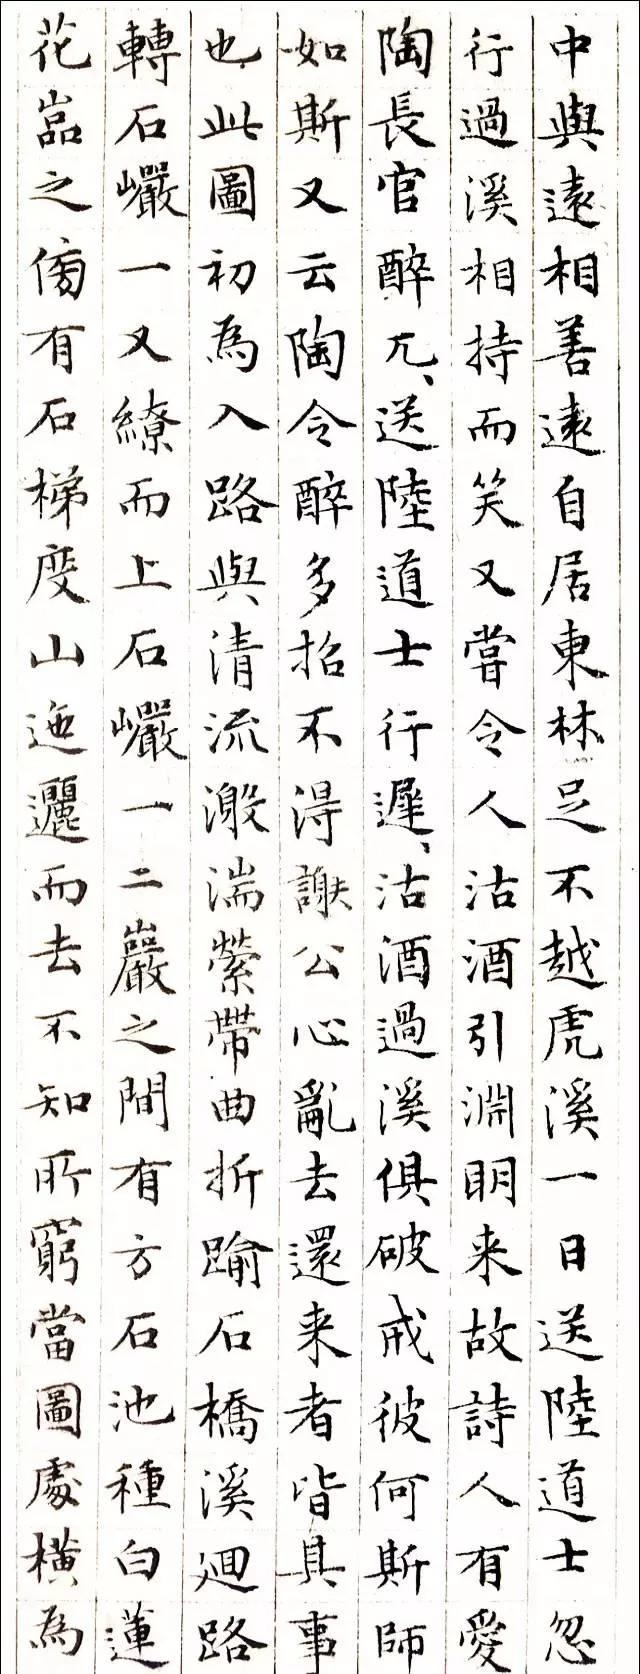 中與遠相善遠自居東林足不越虎溪一日送陸道士忽
行過溪相持而笑又嘗令人沽酒引淵明来故詩人有愛
陶長官醉兀〻送陸道士行遲〻沽酒過溪俱破戒彼何斯師
如斯又云陶令醉多招不得謝公心亂去還来者皆具事
也此圖初為入路與清流激湍縈帶曲折踰石橋溪迴路
轉石巖一又繚而上石巖一二巖之間有方石池種白蓮
花嵓之傍有石梯度山迤邐而去不知所窮當圖處橫為